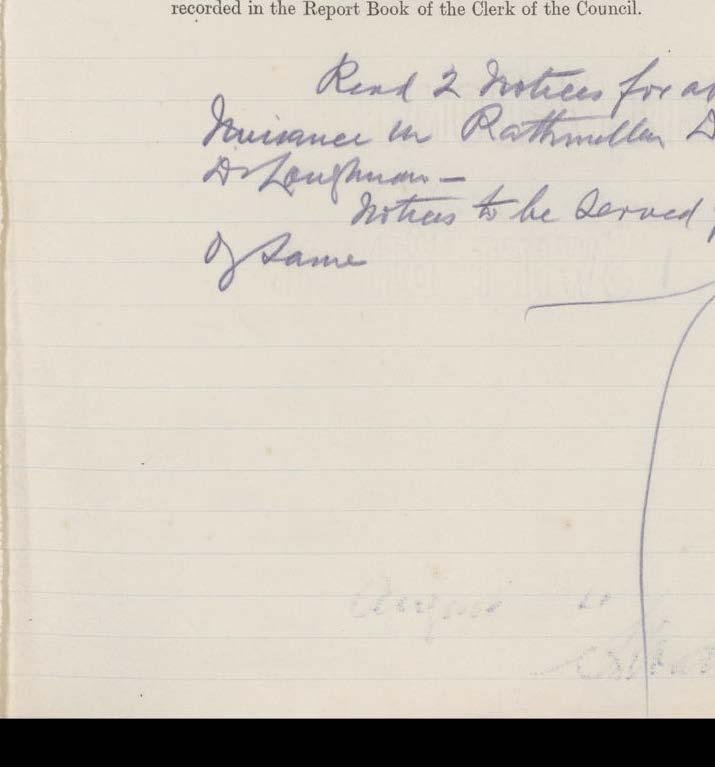 recorded in the Report Book of the Clerk of the Council.
Read 2 Notices for
Nuisance in Rathmullan
Dr Loughnan —
Notices to be served
of same